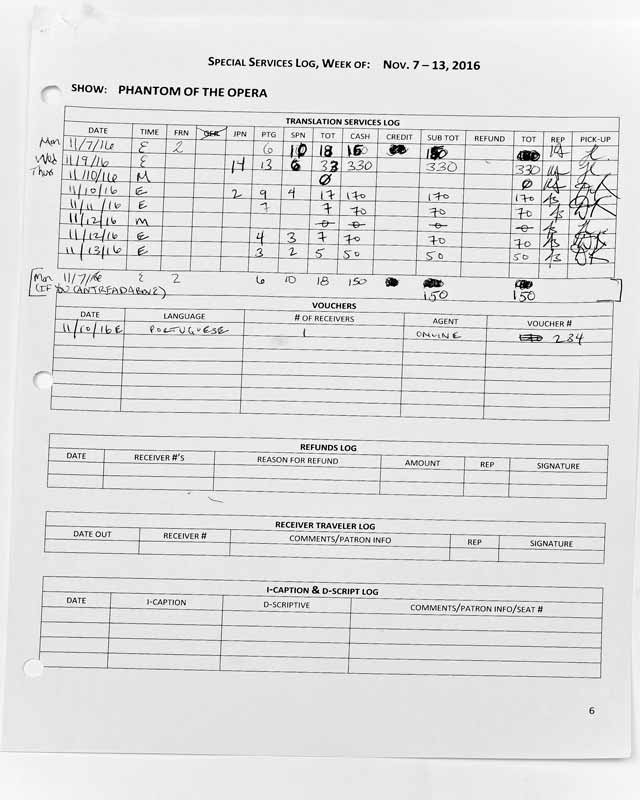 SPECIAL SERVICES LOG, WEEK OF: NOV. 7 – 13, 2016
SHOW: PHANTOM OF THE OPERA
TRANSLATION SERVICES LOG
DATE TIME FRN GER JPN PTG SPN TOT CASH CREDIT SUB TOT REFUND TOT REP PICK-UP
Mon 11/7/16 E 2 6 10 18
Wed 11/9/16 E 14 13 6 33 330 330 330
Thus 11/10/16 M 0 0
11/10/16 E 2 9 4 17 170 170 170
11/11/16 E 7 7 70 70 70
11/12/16 M 0 0 0 0
11/12/16 E 4 3 7 70 70 70
11/13/16 E 3 2 5 50 50 50
Mon 11/7/16 E 2 6 10 18 150
(IF YOU CANT READ ABOVE) 150 150
VOUCHERS
DATE LANGUAGE # OF RECEIVERS AGENT VOUCHER #
11/10/16 E PORTUGUESE 1 ONLINE 284
REFUNDS LOG
DATE RECEIVER #'S REASON FOR REFUND AMOUNT REP SIGNATURE
RECEIVER TRAVELER LOG
DATE OUT RECEIVER # COMMENTS/PATRON INFO REP SIGNATURE
I-CAPTION & D-SCRIPT LOG
DATE I-CAPTION D-SCRIPTIVE COMMENTS/PATRON INFO/SEAT #
6